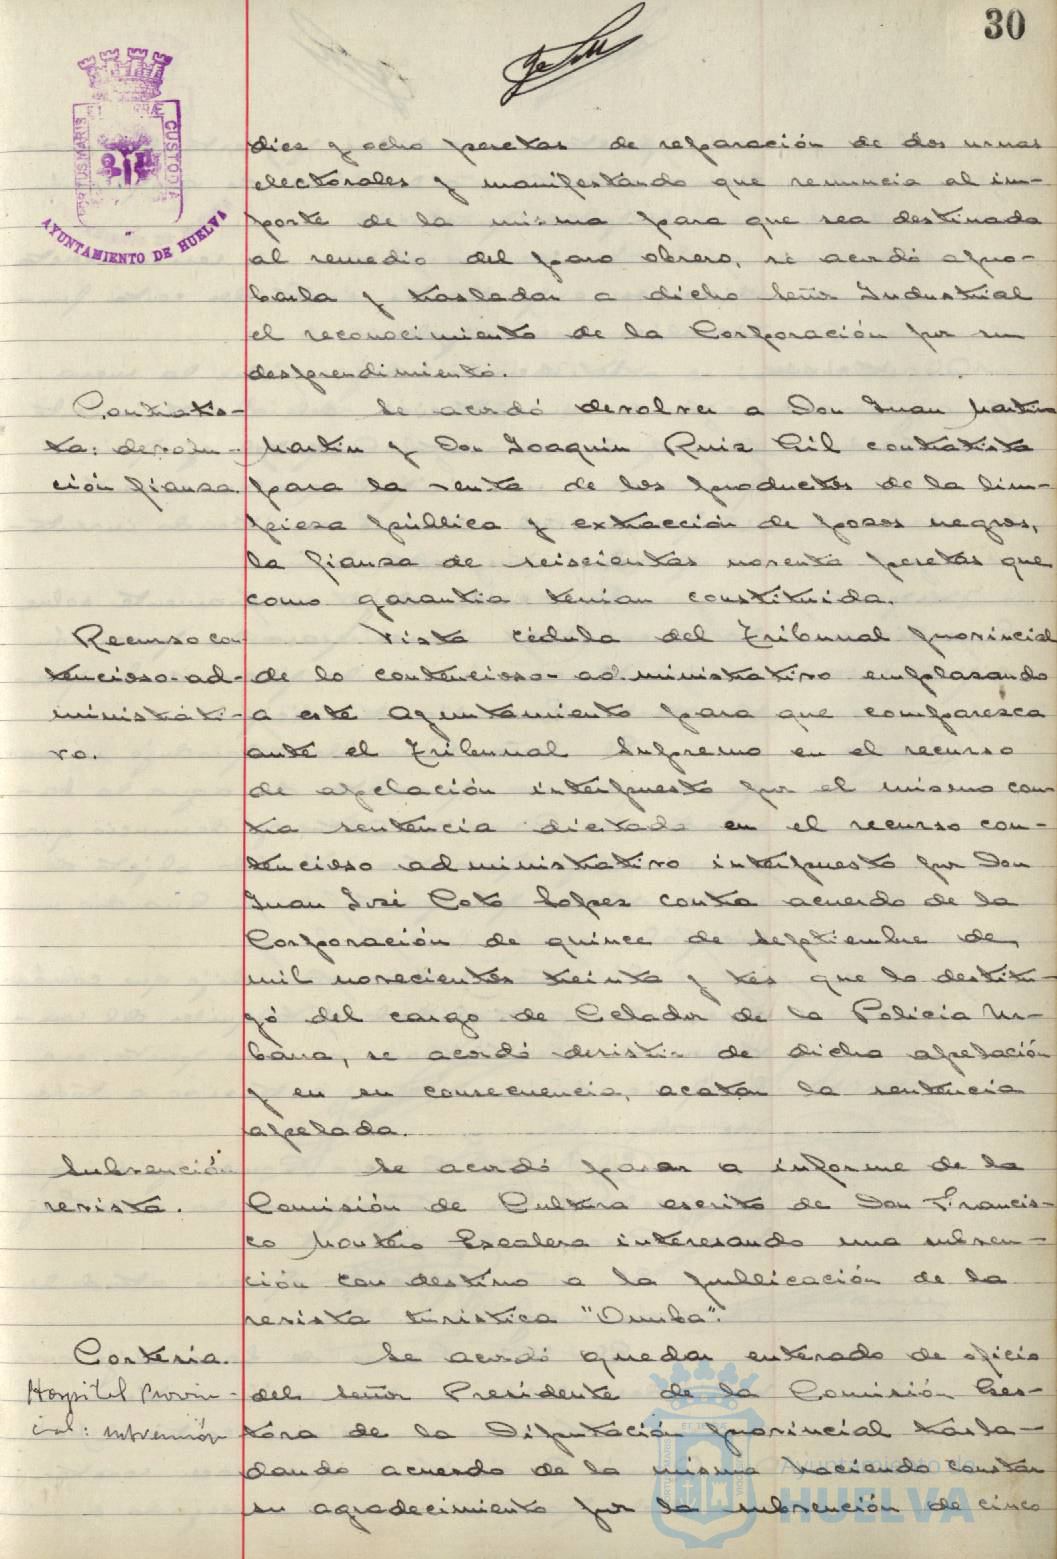 30
PORTUS MARIS ET TERRÆ CUSTODIA
AYUNTAMIENTO DE HUELVA
diez y ocho pesetas de reparación de dos urnas
electorales y manifestando que renuncia al im-
porte de la misma para que sea destinada
al remedio del paro obrero, se acordó apro-
barla y trasladar a dicho Señor Industrial
el reconocimiento de la Corporación por su
desprendimiento.
Contratis-
ta: devolu-
ción fianza.
Se acordó devolver a Don Juan Martin
Martin y Don Joaquin Ruiz Gil contratista
para la venta de los productos de la lim-
pieza pública y extracción de pozos negros,
la fianza de seiscientas noventa pesetas que
como garantia tenian constituida.
Recurso con
tencioso-ad-
ministrati-
vo.
Vista cédula del Tribunal provincial
de lo contencioso-administrativo emplazando
a este Ayuntamiento para que comparezca
ante el Tribunal Supremo en el recurso
de apelación interpuesto por el mismo con-
tra sentencia dictada en el recurso con-
tencioso administrativo interpuesto por Don
Juan José Coto Lopez contra acuerdo de la
Corporación de quince de septiembre de
mil novecientos treinta y tres que lo destitu-
yó del cargo de Celador de la Policia Ur-
bana, se acordó desistir de dicha apelación
y en su consecuencia, acatar la sentencia
apelada.
Subvención
revista.
Se acordó pasar a informe de la
Comisión de Cultura escrito de Don Francis-
co Montero Escalera interesando una subven-
ción con destino a la publicación de la
revista turistica "Onuba".
Cortesia.
Hospital Provin-
cial: subvención
Se acordó quedar enterado de oficio
del Señor Presidente de la Comisión Ges-
tora de la Diputación provincial trasla-
dando acuerdo de la misma haciendo constar
su agradecimiento por la subvención de cinco
Ayuntamiento de
HUELVA